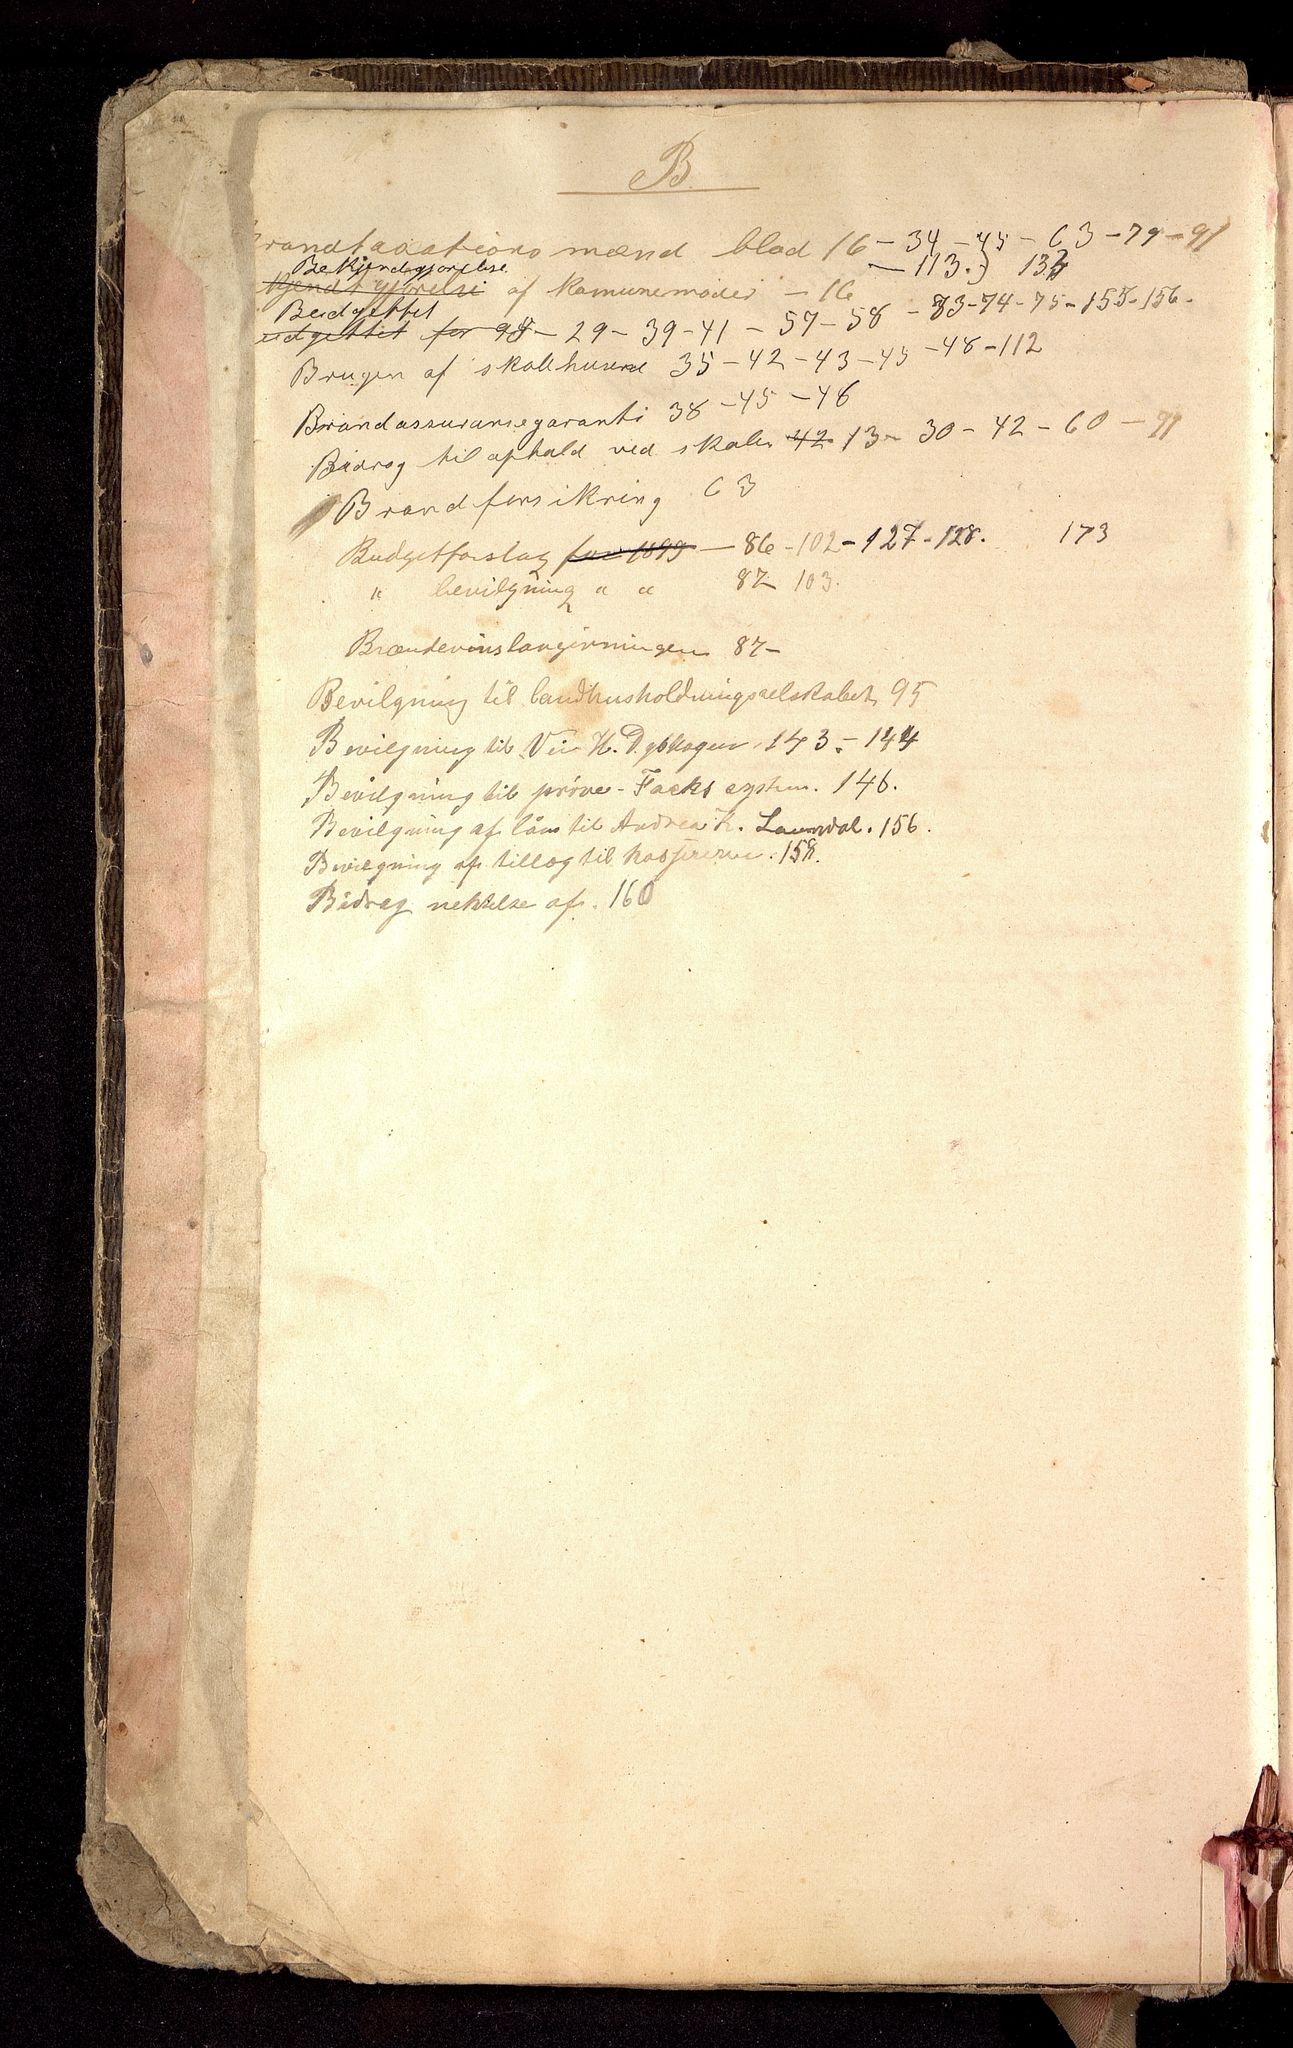 B.
randtaxationsmænd blad 16 - 34 - 45 - 63 - 79 - 91
- 113.) 134
Bekjendtgjørelse
kjendtgjørelse af komunemøder - 16
Budgettet
udgettet for 98 - 29 - 39 - 41 - 57 - 58 - 73 - 74 - 75 - 155 - 156.
Brugen af skolehusene 35 - 42 - 43 - 45 - 48 - 112
Brandassuransegaranti 38 - 45 - 46
Bidrag til ophold ved skoler 42 13 - 30 - 42 - 60 - 91
Brandforsikring 63
Budgetforslag for 1899 - 86 - 102 - 127 - 128. 173
" bevilgning " " 87 103.
Brændevinslovgivningen 87 -
Bevilgning til landhusholdningsselskabet, 95
Bevilgning til Vei H. Dybkogen 143 - 144
Bevilgning til prøve - Facks system. 146.
Bevilgning af lån til Andrea K. Laundal. 156.
Bevilgning af tillæg til kassereren. 158.
Bidrag nektelse af. 160